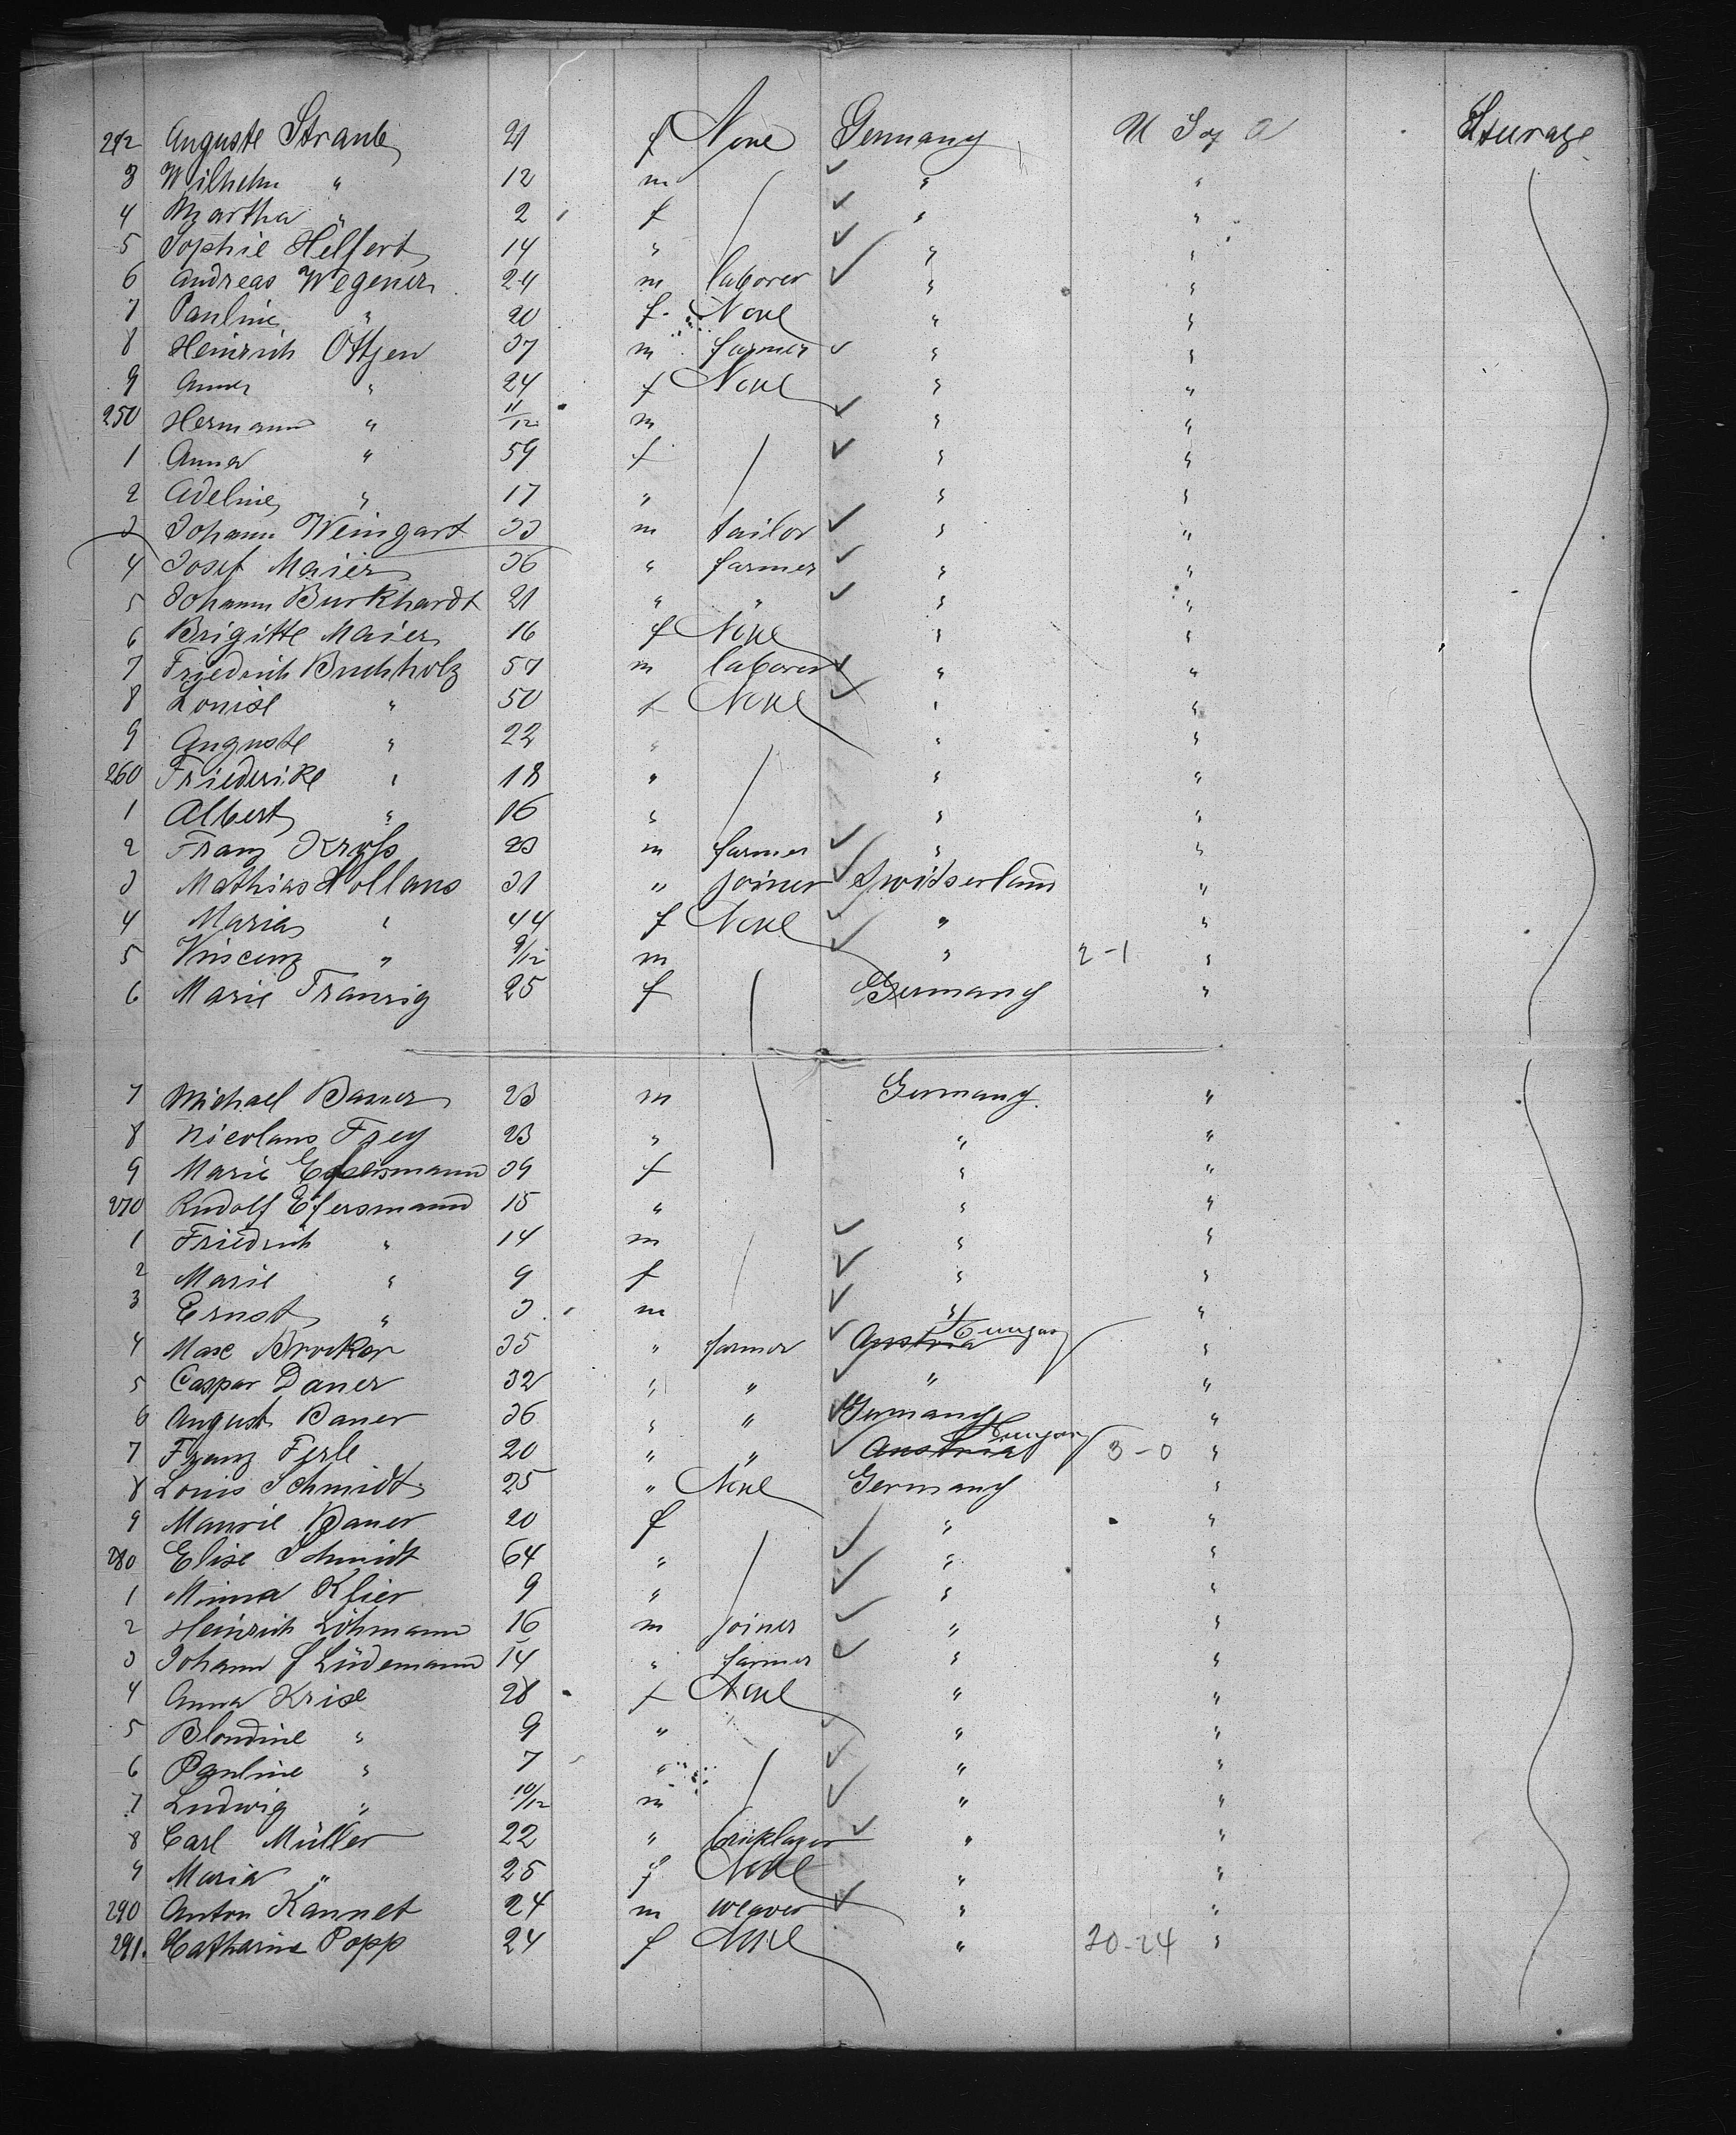 242 Auguste Straub 21 f None Germany U S of A Steerage
3 Wilhelm " 12 m " "
4 Martha " 2 f " "
5 Sophie Helfert 14 " " "
6 Andreas Wegener 24 m laborer " "
7 Pauline " 20 f. None " "
8 Heinrich Ottjen 37 m farmer " "
9 Anna " 24 f None " "
250 Hermann " 11/12 m " "
1 Anna " 59 f " "
2 Adeline " 17 " " "
3 Johann Weingart 33 m tailor " "
4 Josef Maier 36 " farmer " "
5 Johann Burkhardt 21 " " " "
6 Brigitte Maier 16 f None " "
7 Friedrich Buchholz 57 m laborer " "
8 Louise " 50 f None " "
9 Auguste " 22 " " "
260 Friederike " 18 " " "
1 Albert " 16 " " "
2 Franz 23 m farmer " "
3 Mathias Hollans 31 " joiner Switserland "
4 Maria " 44 f None " "
5 Vincenz " 9/12 m " 2-1 "
6 Marie Tranrig 25 f Germany "
7 Michael Bauer 23 m Germany. "
8 Nicolaus Frey 23 " " "
9 Marie 39 f " "
270 Rudolf Efersmann 15 " " "
1 Friedrich " 14 m " "
2 Marie " 9 f " "
3 Ernst " 3 m " "
4 Max Brocker 35 " farmer Austria Hungary "
5 Caspar Daner 32 " " " "
6 August Bauer 36 " " Germany "
7 Franz Ferle 20 " " Austria Hungary 3-0 "
8 Louis Schmidt 25 " None Germany "
9 Maurie Bauer 20 f " "
280 Elise Schmidt 64 " " "
1 Minna Klier 9 " " "
2 Heinrich Löhmann 16 m joiner " "
3 Johann f Lüdemann 14 " farmer " "
4 Anna Krise 28 f None " "
5 Blondine " 9 " " "
6 Pauline " 7 " " "
7 Ludwig " 10/12 m " "
8 Carl Müller 22 " bricklayer " "
9 Maria " 25 f None " "
290 Anton Kannet 24 m weaver " "
291. Catharine Popp 24 f None " 20-24 "